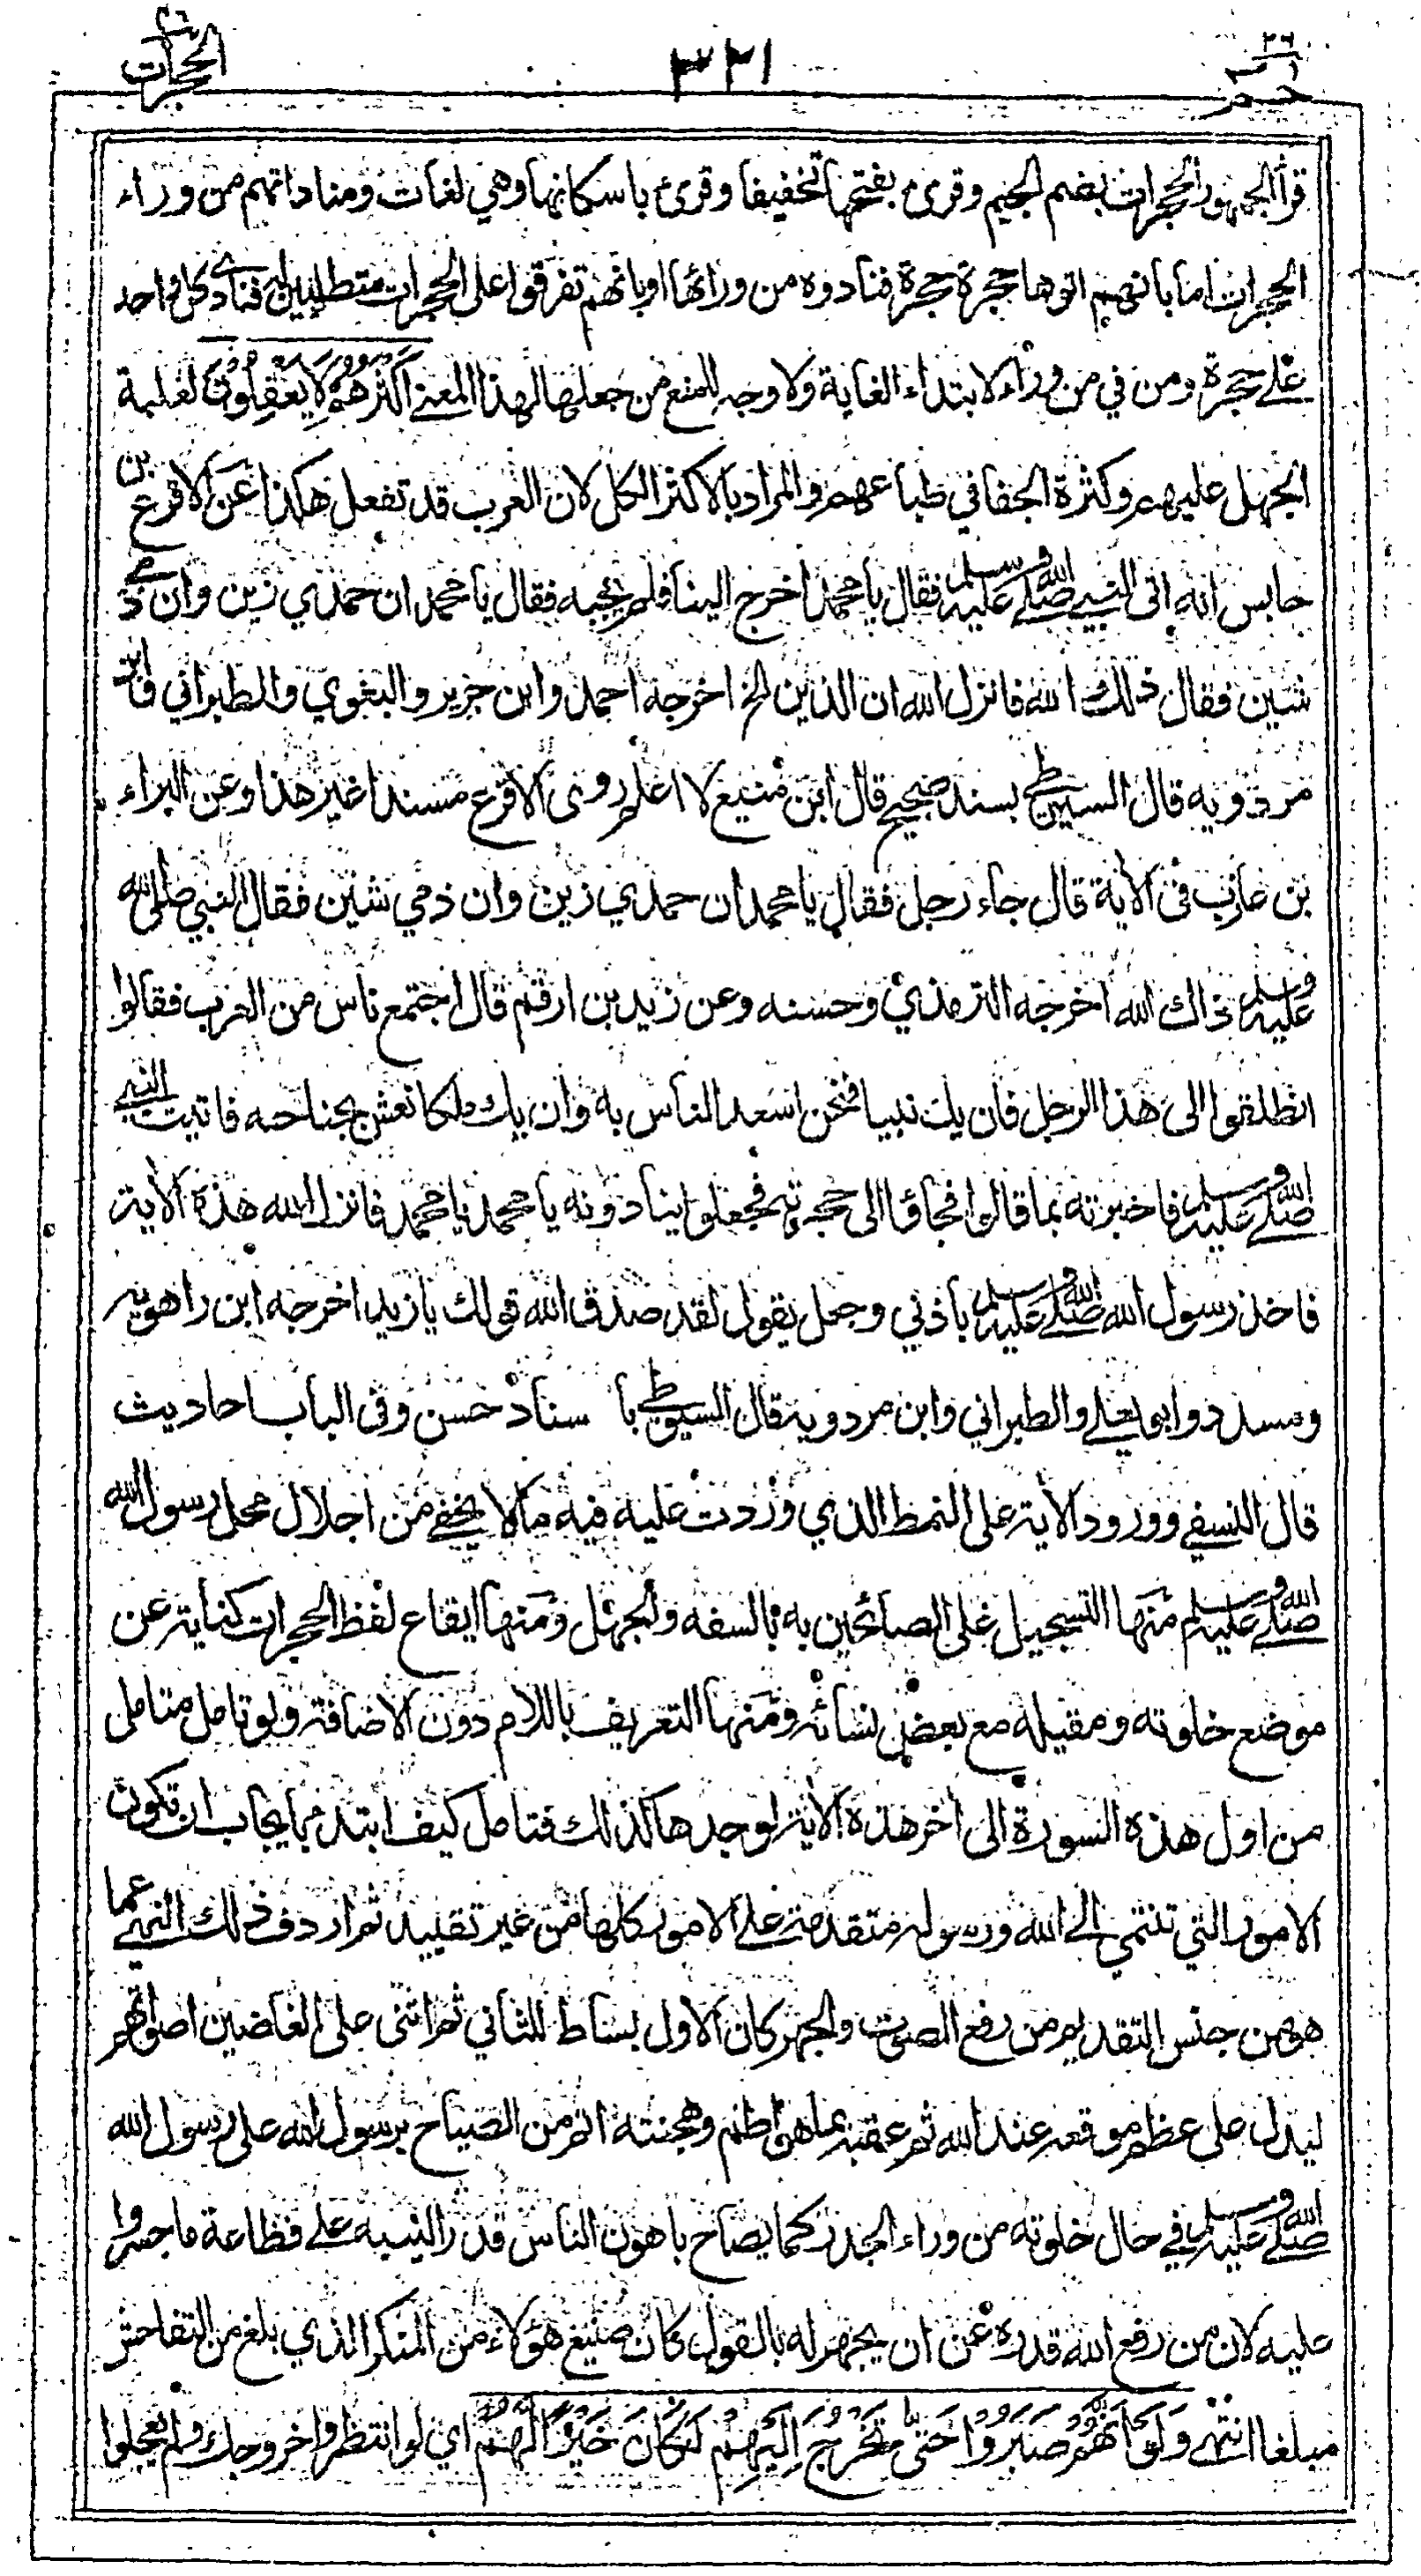 الحجرات ٤٩
٣٢١
حم ٢٦
قرأ الجمهور الحجرات بضم الجيم وقرئ بفتحها تخفيفا وقرئ باسكانها وهي لغات ومناداتهم من وراء
الحجرات اما بانهم اتوها حجرة حجرة فنادوه من ورائها او بانهم تفرقوا على الحجرات متطلبين له فنادى كل واحد
على حجرة ومن في من وراء لابتداء الغاية ولا وجه للمنع من جعلها لهذا المعنى أَكْثَرُهُمْ لَا يَعْقِلُونَ لغلبة
الجهل عليهم وكثرة الجفا في طباعهم والمراد بالاكثر الكل لان العرب قد تفعل هكذا عن الاقرع بن
حابس انه اتى النبي صلى الله عليه وسلم فقال يا محمد اخرج الينا فلم يجبه فقال يا محمد ان حمدي زين وان ذمي
شين فقال ذلك الله فانزل الله ان الذين الخ اخرجه احمد وابن جرير والبغوي والطبراني وابن
مردويه قال السيوطي بسند صحيح قال ابن منيع لا اعلم روى الاقرع مسندا غير هذا وعن البراء
بن عازب في الاية قال جاء رجل فقال يا محمد ان حمدي زين وان ذمي شين فقال النبي صلى الله
عليه وسلم ذاك الله اخرجه الترمذي وحسنه وعن زيد بن ارقم قال اجتمع ناس من العرب فقالوا
انطلقوا الى هذا الرجل فان يك نبيا فنحن اسعد الناس به وان يك ملكا نعش بجناحه فاتيت النبي
صلى الله عليه وسلم فاخبرته بما قالوا فجاؤا الى حجرته فجعلوا ينادونه يا محمد يا محمد فانزل الله هذه الاية
فاخذ رسول الله صلى الله عليه وسلم باذني وجعل يقول لقد صدق الله قولك يا زيد اخرجه ابن راهويه
ومسدد وابو يعلى والطبراني وابن مردويه قال السيوطي با سناد حسن وفى الباب احاديث
قال النسفي وورود الاية على النمط الذي وردت عليه فيه ما لا يخفى من اجلال محل رسول الله
صلى الله عليه وسلم منها التسجيل على الصائحين به بالسفه والجهل ومنها ايقاع لفظ الحجرات كناية عن
موضع خلوته ومقيله مع بعض نسائه ومنها التعريف باللام دون الاضافة ولو تامل متامل
من اول هذه السورة الى اخر هذه الاية لوجدها كذلك فتامل كيف ابتدء بايجاب ان تكون
الامور التي تنتمي الى الله ورسوله متقدمة على الامور كلها من غير تقييد ثم اردف ذلك النهي عما
هو من جنس التقديم من رفع الصوت والجهر كان الاول بساط للثاني ثم اثنى على الغاضين اصواتهم
ليدل على عظم موقعه عند الله ثم عقبه بما هو اطم وهجنته اتم من الصياح برسول الله على رسول الله
صلى الله عليه وسلم في حال خلوته من وراء الجدر كما يصاح باهون الناس قدرا لينبه على فظاعة ما جسروا
عليه لان من رفع الله قدره عن ان يجهر له بالقول كان صنيع هؤلاء من المنكر الذي بلغ من التفاحش
مبلغا انتهى وَلَوْ أَنَّهُمْ صَبَرُوا حَتَّى تَخْرُجَ إِلَيْهِمْ لَكَانَ خَيْرًا لَهُمْ اي لو انتظروا خروجك ولم يعجلوا